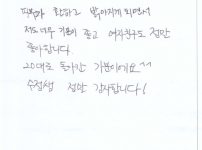 피부가 환하고 밝아지게 되면서
저도 너무 기분이 좋고 여자친구도 정말
좋아합니다.
20대로 돌아간 기분이에요^^
수정샘 정말 감사합니다!